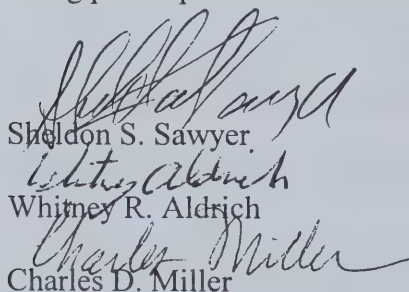 Sheldon S. Sawyer
Whitney Aldrich
Whitney R. Aldrich
Charles Miller
Charles D. Miller